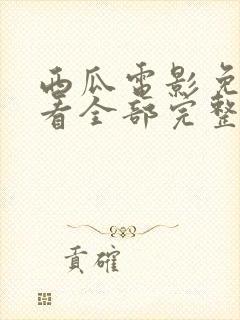 西瓜电影免
看全部完整
贡確